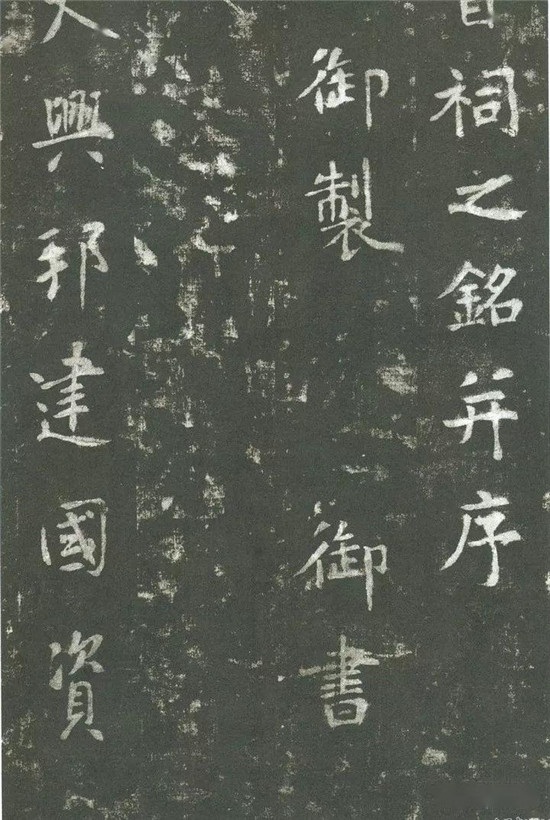 祠之銘并序
御製 御書
興邦建國資